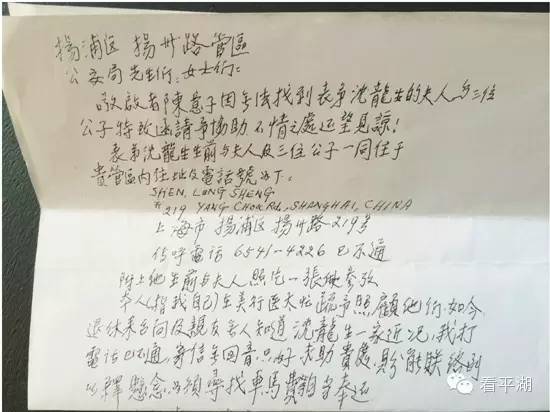 揚浦区 揚州路管區
公安局先生们:女士们:
敬啟者陳慧子因無法找到表弟沈龍生的夫人与三位
公子特致函請求協助不情之處还望見諒!
表弟沈龍生生前与夫人及三位公子一同住于
貴管區内住址及電話號為下:
SHEN, LONG SHENG
#219 YANG CHOW RD, SHANGHAI, CHINA
上海市 揚浦区 揚州路219号
传呼電話 6541-4226 已不通
附上他生前与夫人照片一張做参攷
本人(指我自己)在美行医太忙疏于照顧他们,如今
退休来台向及親友
客人知道沈龍生一家近况,我打
電話已不通,寄信無回音,只好求助貴處,盼能联络則
以釋懸念,必須尋找車馬費
当奉还
看平湖